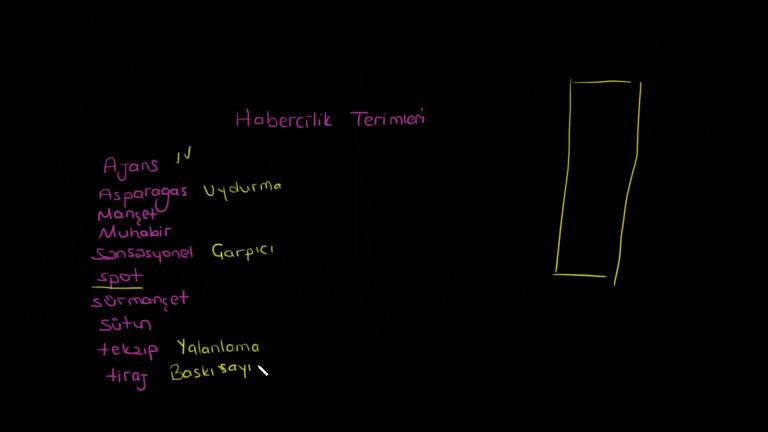 Habercilik Terimleri
Ajans
Asparagas Uydurma
Manşet
Muhabir
Sansasyonel Çarpıcı
spot
sürmanşet
sütun
tekzip Yalanlama
tiraj Baskı sayı